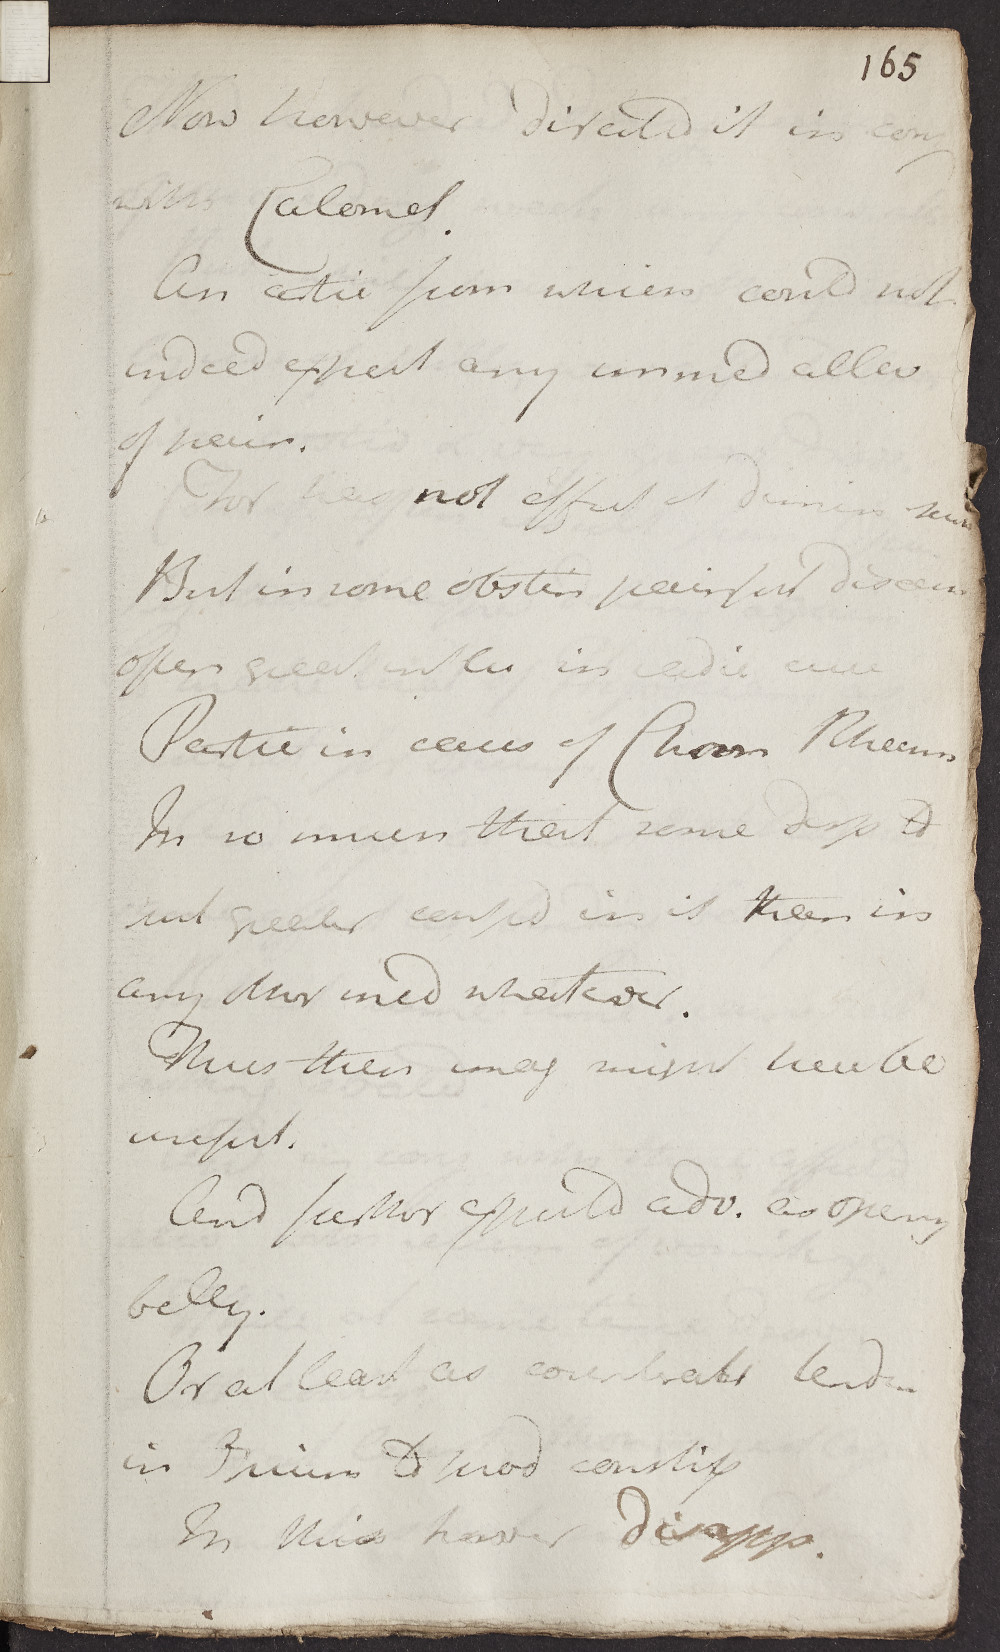 165
Now however directed it in conj
with Calomel.
An artic from which could not
indeed expect any immed allev
of pain.
For has not effect of dimin sens
But in some obstin painful diseas
often great in radic cure
Partic in cases of Chron Rheum
In so much that some disp to
put greater confid in it than in
any other med whatever.
Thus then imag might here be
useful.
And further expected adv. as openg
belly.
Or at least as counteract tenden
in Opium to prod constip
In this however disapp.